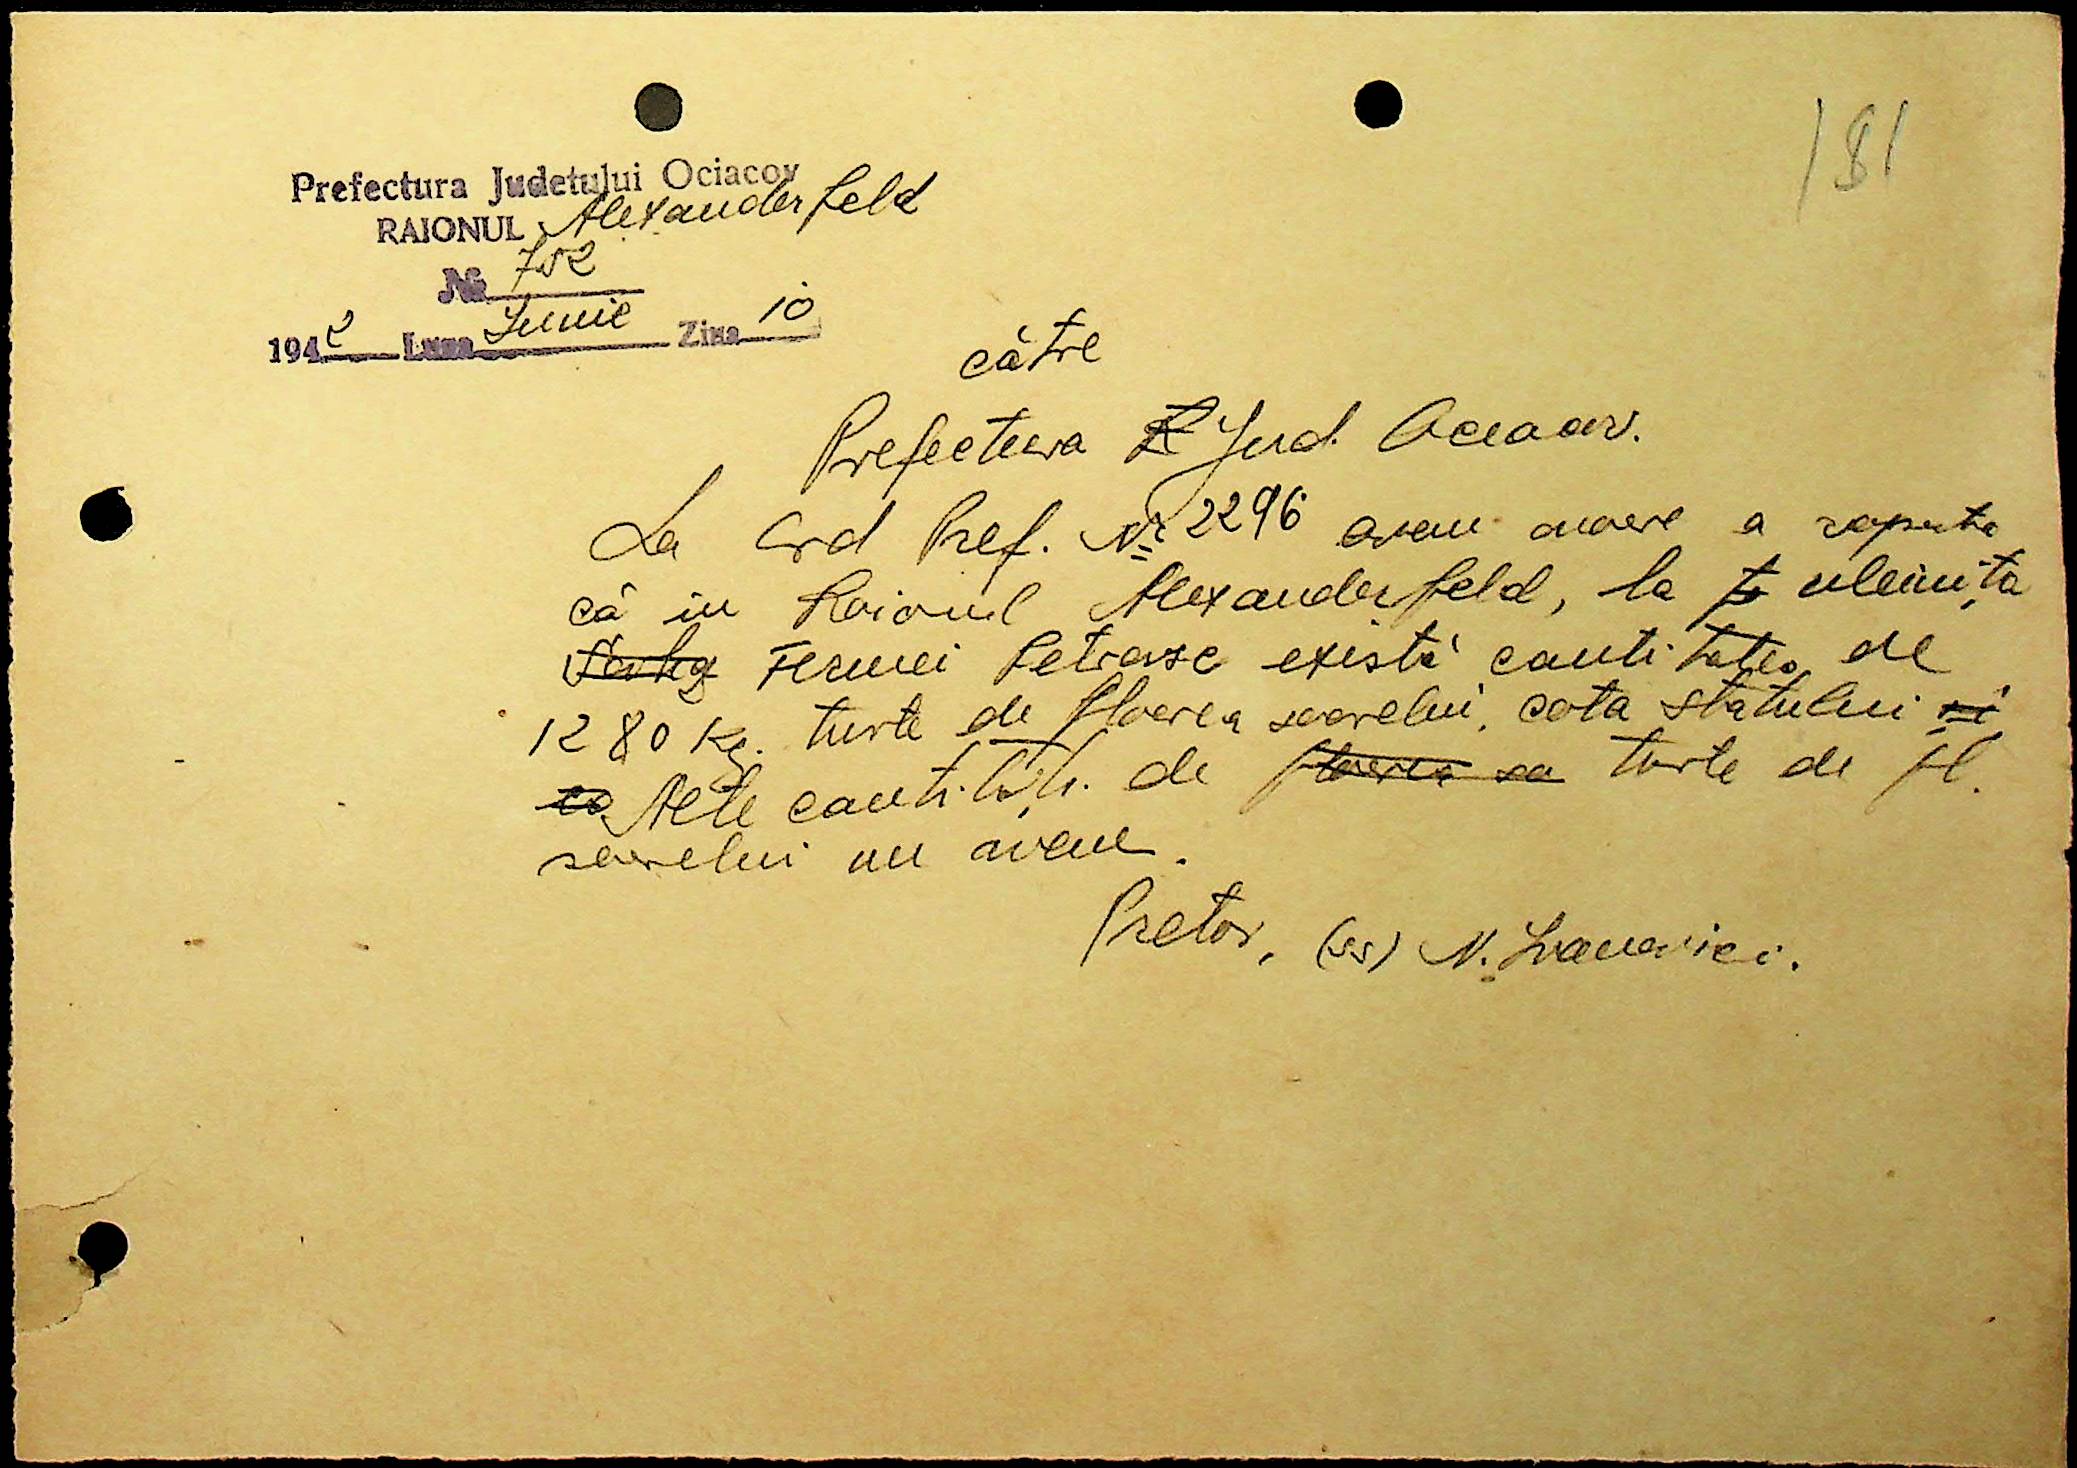 181
Prefectura Judetului Ociacov
RAIONUL Alexanderfeld
№ 752
1942 Luna Iunie Ziua 10
către
Prefectura R Jud. Oceacov.
La Ord Pref. Nr 2296 avem onoare a raporta
că in Raionul Alexanderfeld, la f uleinița
Fermei Petrovsc există cantitatea de
1280 kg. turte de floarea soarelui, cota statului și
ca Alte cantităţi de floarea soa turte de fl.
soarelui nu avem.
Pretor, (ss) N. Ivanovici.